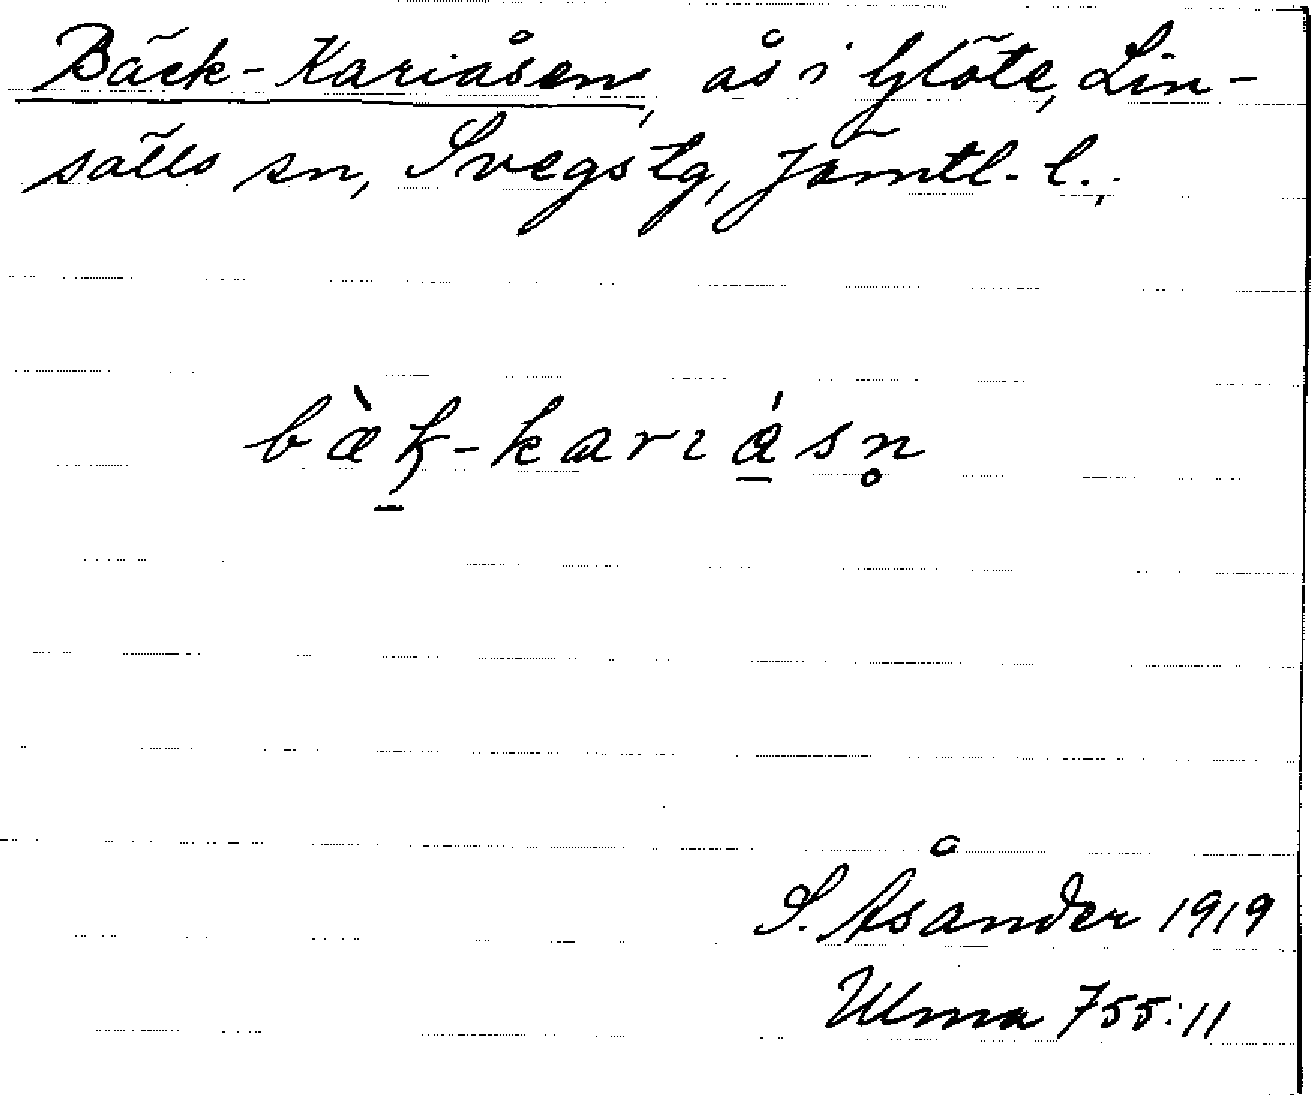 Bäck-Kariåsen, ås i Glöte, Lin-
sälls sn, Svegs tg, Jämtl. l.
bæ̀k̠-karıá̱sn̥
S. Åsander 1919
Ulma 755:11